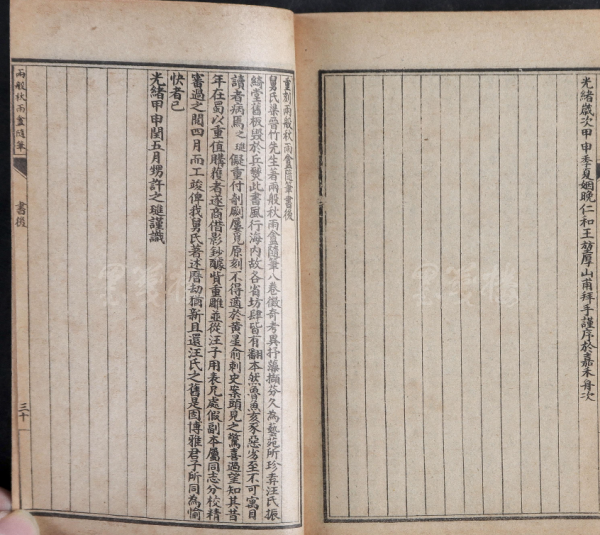 光緒歲次甲申季夏姻晚仁和王堃厚山甫拜手謹序於嘉禾舟次
重刻兩般秋雨盦隨筆書後
舅氏梁晉竹先生著兩般秋雨盦隨筆八卷徵奇考異抒藻摛芬久為藝苑所珍弆汪氏振
綺堂舊板毀於兵燹此書風行海內故各省坊肆皆有翻本然魯魚亥豕惡劣至不可寓目
讀者病焉之璡儗重付剞劂屢覓原刻不得適於黃星俞刺史案頭見之驚喜過望知其昔
年在蜀以重值購獲者遂商借影鈔醵貲重雕並從汪子用表兄處假副本屬同志分校精
審過之閱四月而工竣俾我舅氏著述曆劫猶新且還汪氏之舊是固博雅君子所同為愉
快者已
光緒甲申閏五月甥許之璡謹識
兩般秋雨盦隨筆
書後
三十